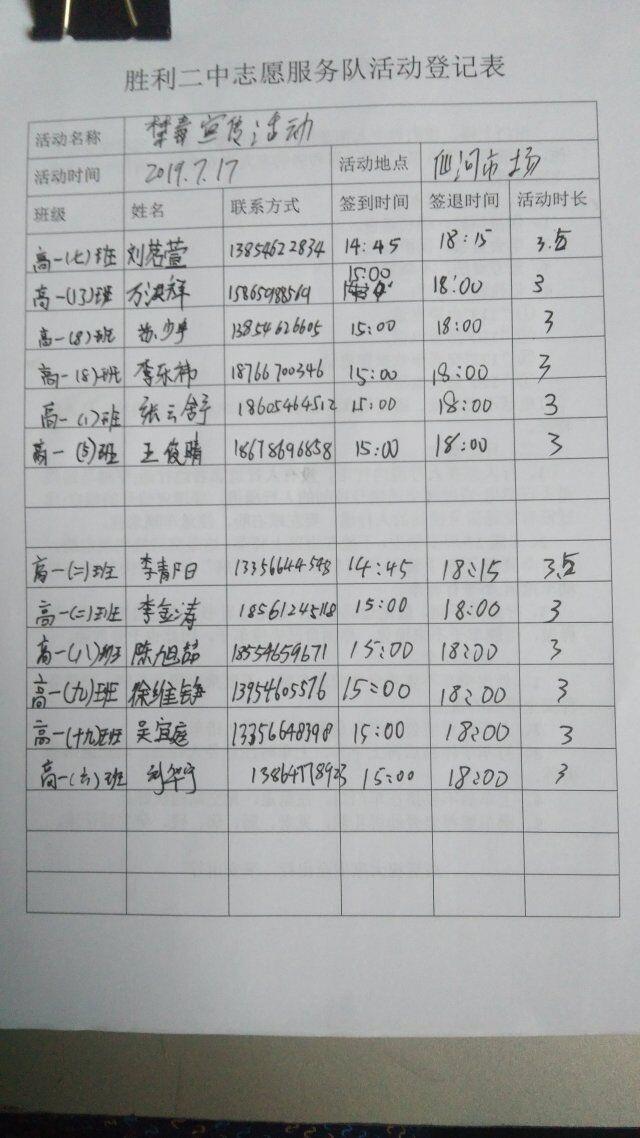 胜利二中志愿服务队活动登记表
活动名称 禁毒宣传活动
活动时间 2019.7.17 活动地点 仙河市场
班级 姓名 联系方式 签到时间 签退时间 活动时长
高一(七)班 刘茗萱 13854622834 14:45 18:15 3.5
高一(13)班 万洪祥 15865988569 15:00 18:00 3
高一(8)班 苏少华 13854626605 15:00 18:00 3
高一(8)班 李乐祎 18766700346 15:00 18:00 3
高一(1)班 张云舒 18605464512 15:00 18:00 3
高一(5)班 王俊晴 18678696858 15:00 18:00 3
高一(二)班 李青阳 13356644548 14:45 18:15 3.5
高一(二)班 李金涛 15:00 18:00 3
高一(八)班 陈旭喆 18554659671 15:00 18:00 3
高一(九)班 徐维铮 13954605576 15:00 18:00 3
高一(十九)班 吴宜庭 13356648398 15:00 18:00 3
高一(六)班 刘华宁 13864778923 15:00 18:00 3